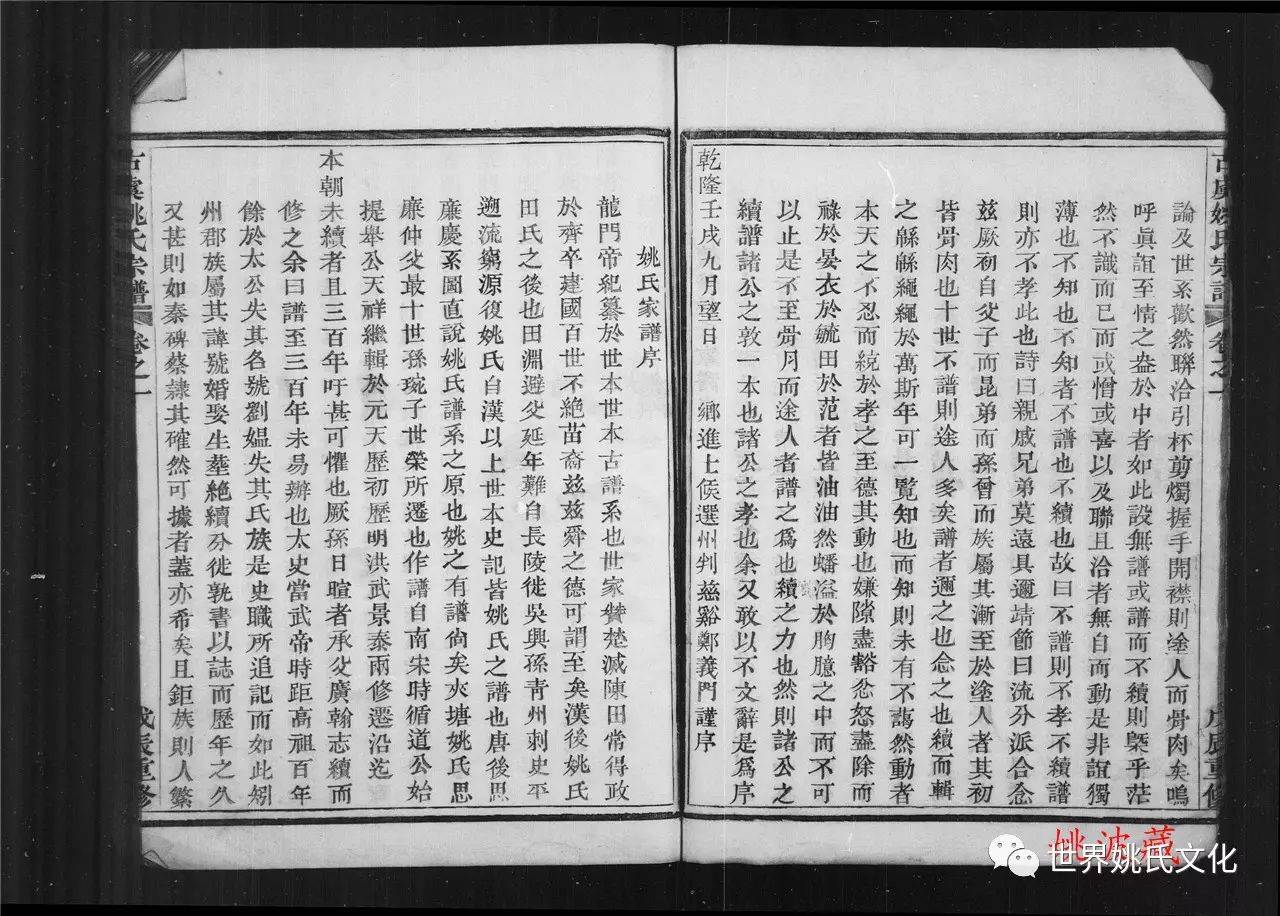 論及世系歡然聯洽引杯剪燭握手開襟則塗人而骨肉矣嗚
呼眞誼至情之益於中者如此設無譜或譜而不續則槩乎茫
然不識而已而或憎或喜以及聯且洽者無自而動是非誼獨
薄也不知也不知者不譜也不續也故曰不譜則不孝不續譜
則亦不孝此也詩曰親戚兄弟莫遠具邇靖節曰流分派合念
兹厥初自父子而昆弟而孫曾而族屬其漸至於塗人者其初
皆骨肉也十世不譜則途人多矣譜者邇之也念之也續而輯
之緜緜繩繩於萬斯年可一覽知也而知則未有不藹然動者
本天之不忍而統於孝之至德其動也嫌隙盡豁忿怒盡除而
祿於晏衣於毓田於范者皆油油然蟠溢於胸臆之中而不可
以止是不至骨月而途人者譜之爲也續之力也然則諸公之
續譜諸公之敦一本也諸公之孝也余又敢以不文辭是爲序
乾隆壬戌九月望日 鄉進士候選州判慈谿鄭義門謹序
姚氏家譜序
龍門帝紀纂於世本世本古譜系也世家贊楚滅陳田常得政
於齊卒建國百世不絶苗裔兹兹舜之德可謂至矣漢後姚氏
田氏之後也田淵避父延年難自長陵徙吳興孫青州刺史平
遡流窮源復姚氏自漢以上世本史記皆姚氏之譜也唐後思
廉慶系圖直說姚氏譜系之原也姚之有譜尙矣夾塘姚氏思
廉仲父最十世孫琬子世榮所遷也作譜自南宋時循道公始
提舉公天祥繼輯於元天歷初歷明洪武景泰兩修遷沿迄
本朝未續者且三百年吁甚可懼也厥孫日暄者承父廣翰志續而
修之余曰譜至三百年未易辦也太史當武帝時距高祖百年
餘於太公失其名號劉媼失其氏族是史職所追記而如此矧
州郡族屬其諱號婚娶生塟絶續分徙孰書以誌而歷年之久
又甚則如秦碑蔡隷其確然可據者蓋亦希矣且鉅族則人繁
古虞姚氏宗譜 卷之一 戊辰重修
姚波藏
世界姚氏文化